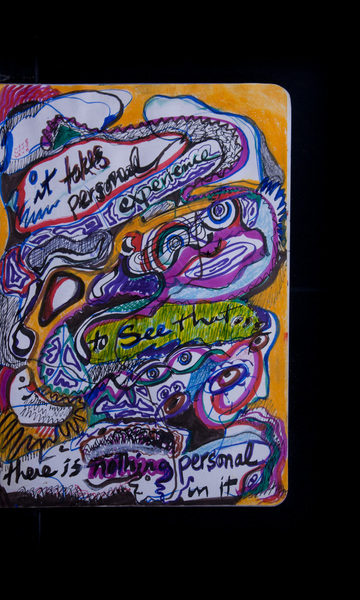 it takes
personal experience
to see that...
there is nothing personal
in it